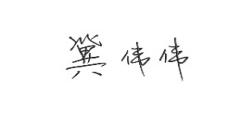 冀伟伟